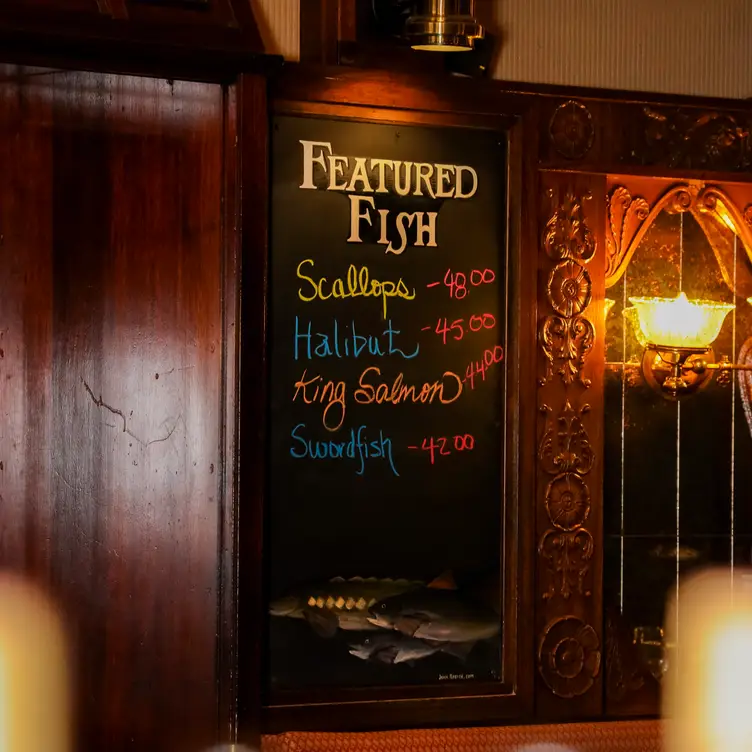 FEATURED
FISH
Scallops - 48.00
Halibut - 45.00
King Salmon - 44.00
Swordfish - 42.00